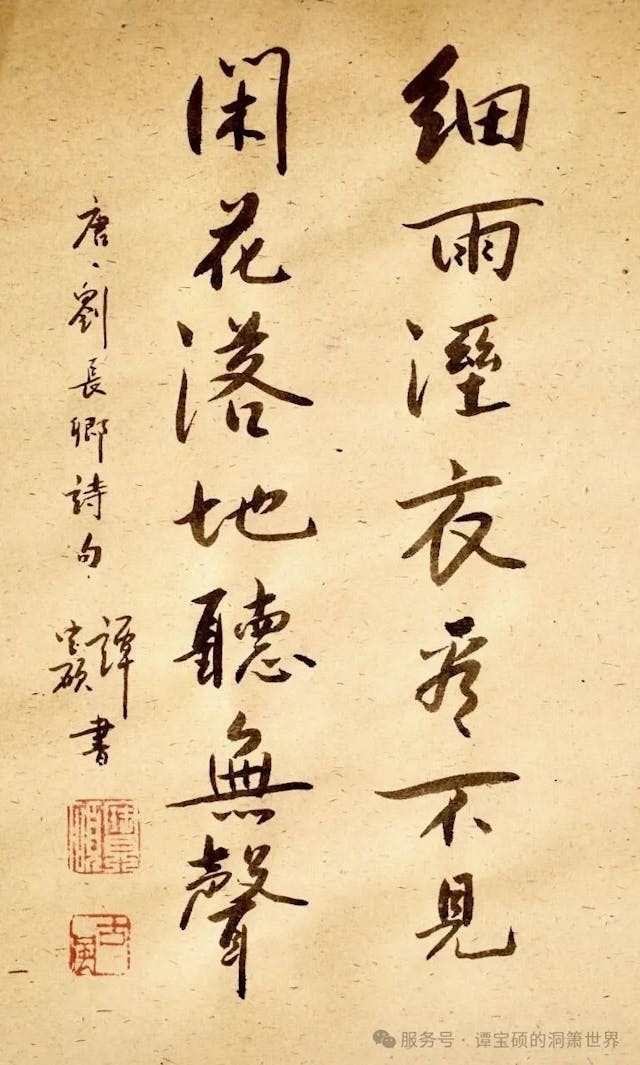 細雨溼衣看不見
閑花落地聽無聲
唐、劉長卿詩句
譚宝硕書
古風
服务号 · 谭宝硕的洞箫世界